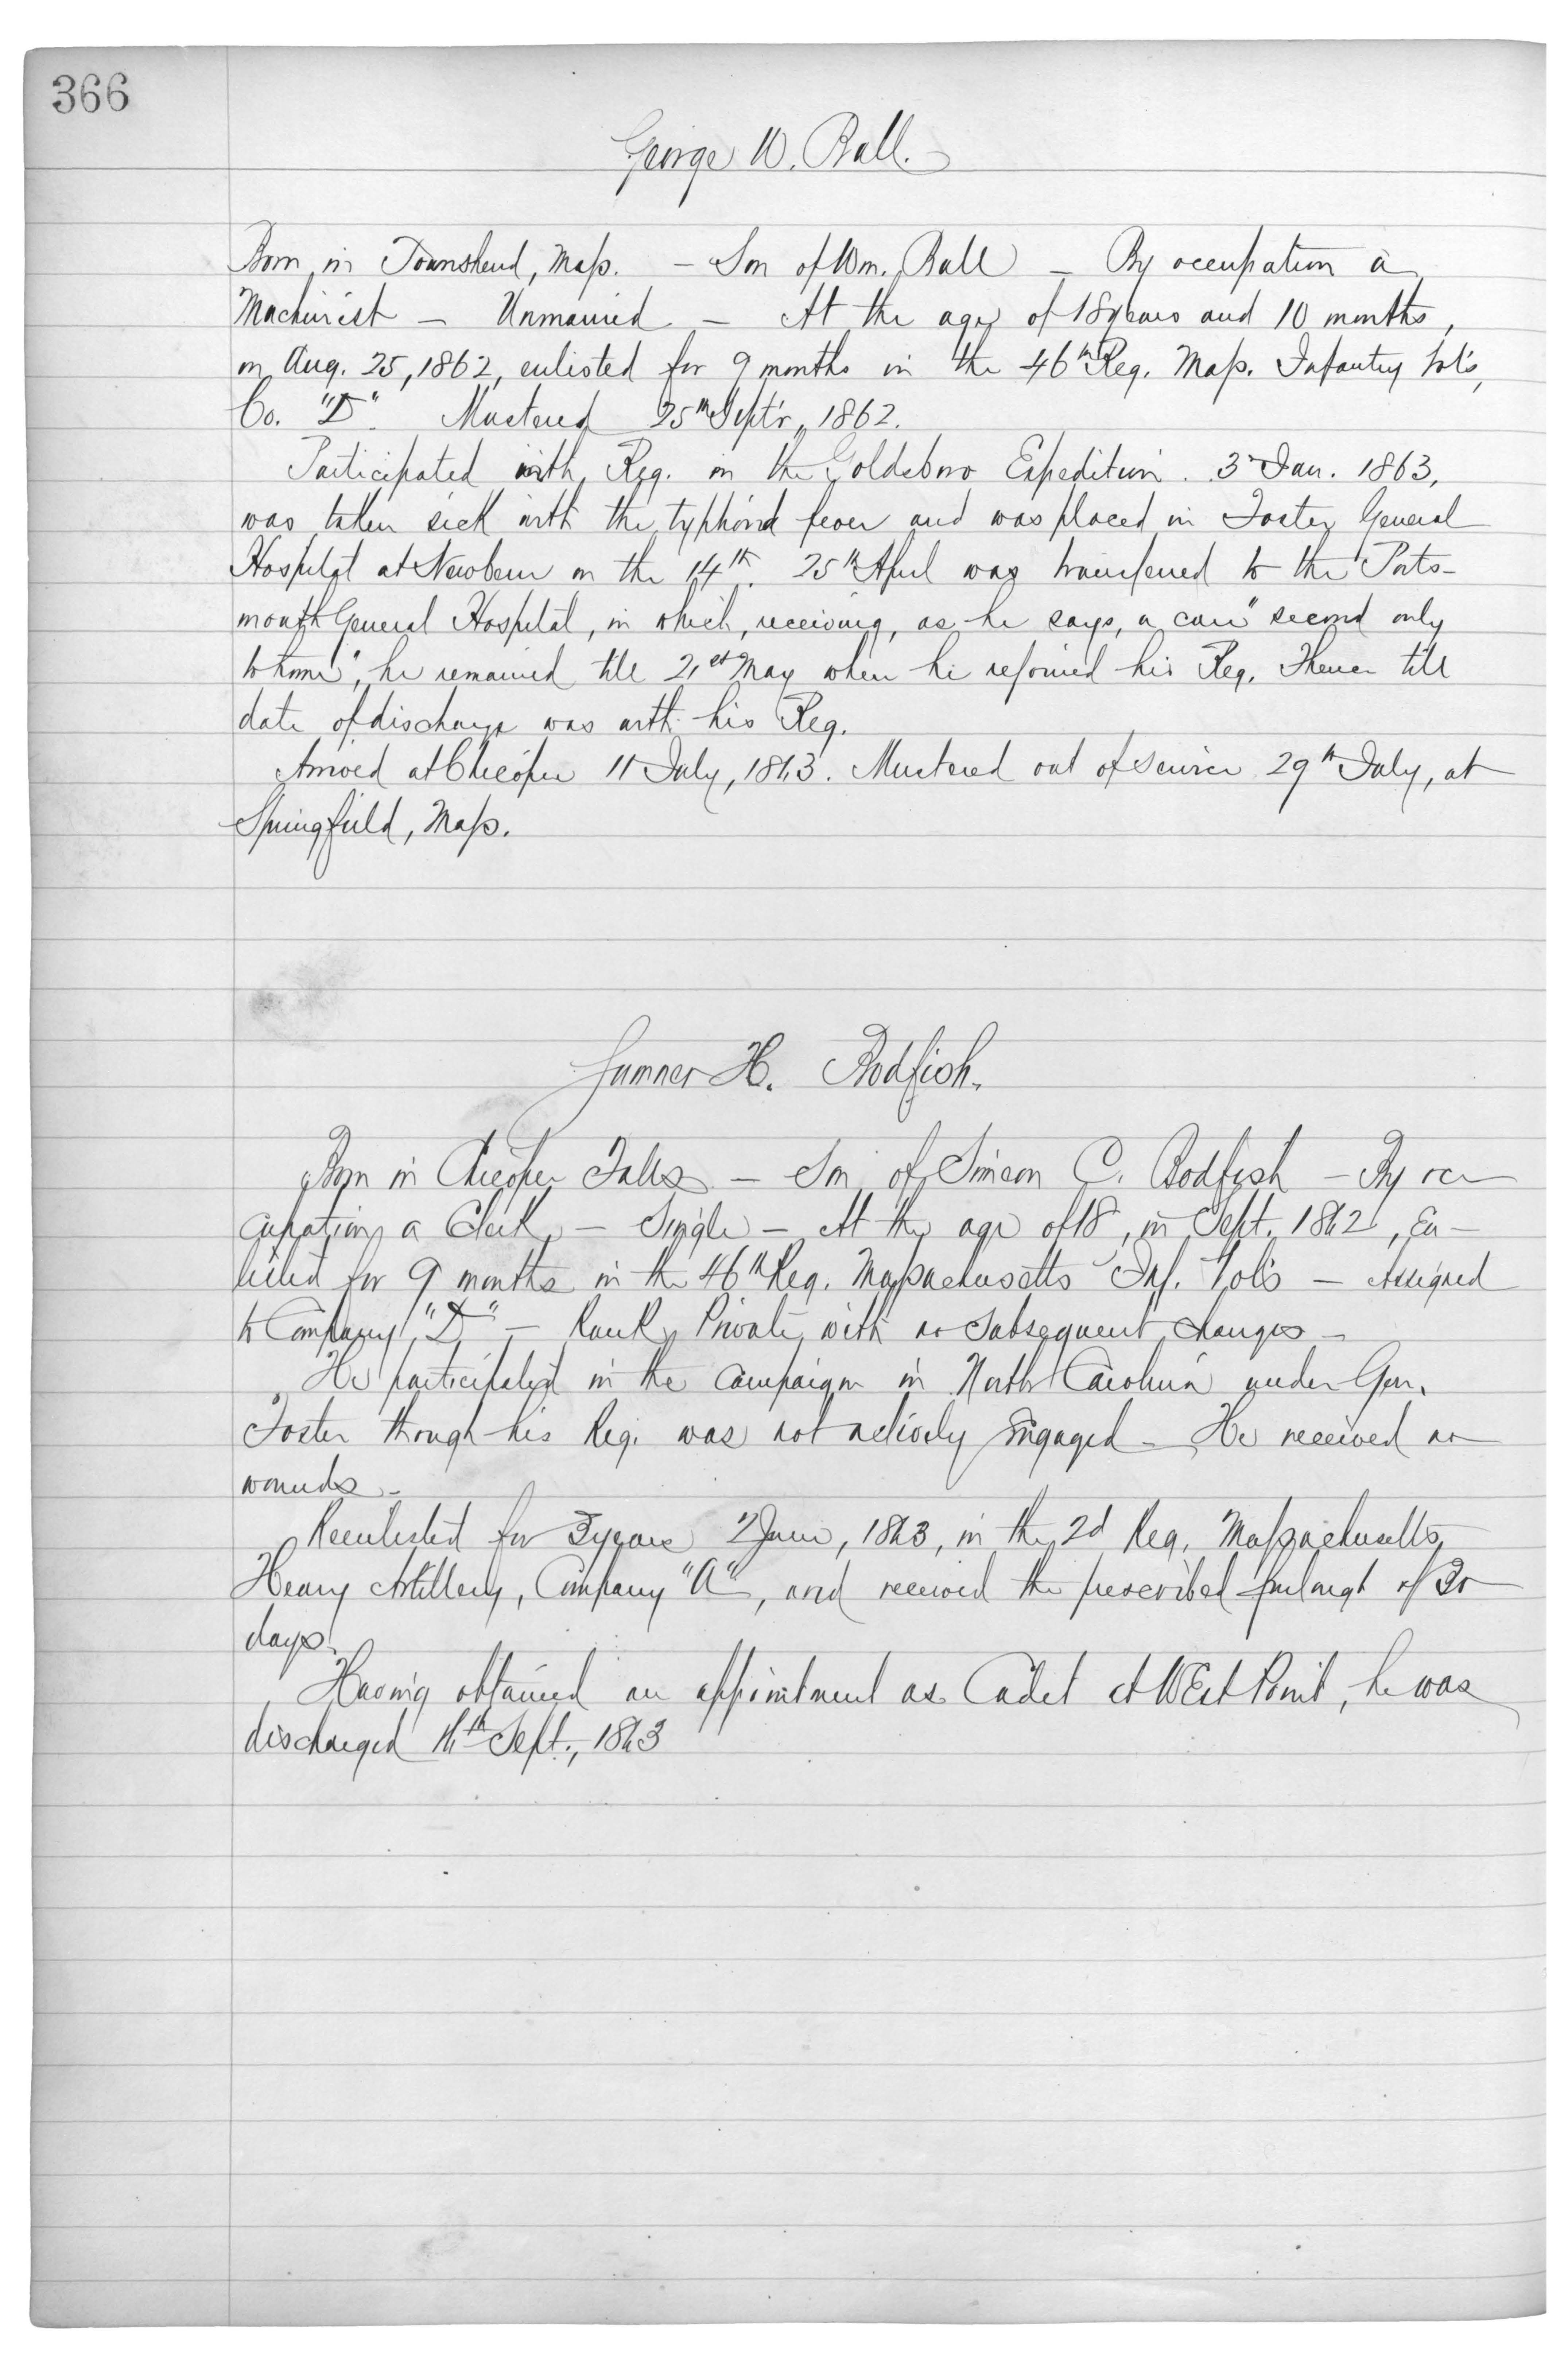 366
George W. Ball.
Born in Townshend, Mass. – Son of Wm. Ball – By occupation a
Machinist – Unmarried – At the age of 18 years and 10 months,
on Aug. 25, 1862, enlisted for 9 months in the 46th Reg. Mass. Infantry Vol's,
Co. "D". Mustered 25th Sept'r, 1862.
Participated with Reg. in the Goldsboro Expedition. 3d Jan. 1863,
was taken sick with the typhoid fever and was placed in Foster General
Hospital at Newbern on the 14th. 25th April was transferred to the Ports-
mouth General Hospital, in which, receiving, as he says, a care "second only
to home", he remained till 21st May when he rejoined his Reg. Thence till
date of discharge was with his Reg.
Arrived at Chicopee 11 July, 1863. Mustered out of service 29th July, at
Springfield, Mass.
Sumner H. Bodfish.
Born in Chicopee Falls – Son of Simeon C. Bodfish – By oc-
cupation a Clerk – Single – At the age of 18, in Sept. 1862, En-
listed for 9 months in the 46th Reg. Massachusetts Inf. Vols – Assigned
to Company "D" – Rank Private with no subsequent changes –
He participated in the campaign in North Carolina under Gen.
Foster though his Reg. was not actively Engaged – He received no
wounds –
Reenlisted for 3 years 2 June, 1863, in the 2d Reg. Massachusetts
Heavy Artillery, Company "A", and received the prescribed furlough of 30
days.
Having obtained an appointment as Cadet at West Point, he was
discharged Sept., 1863